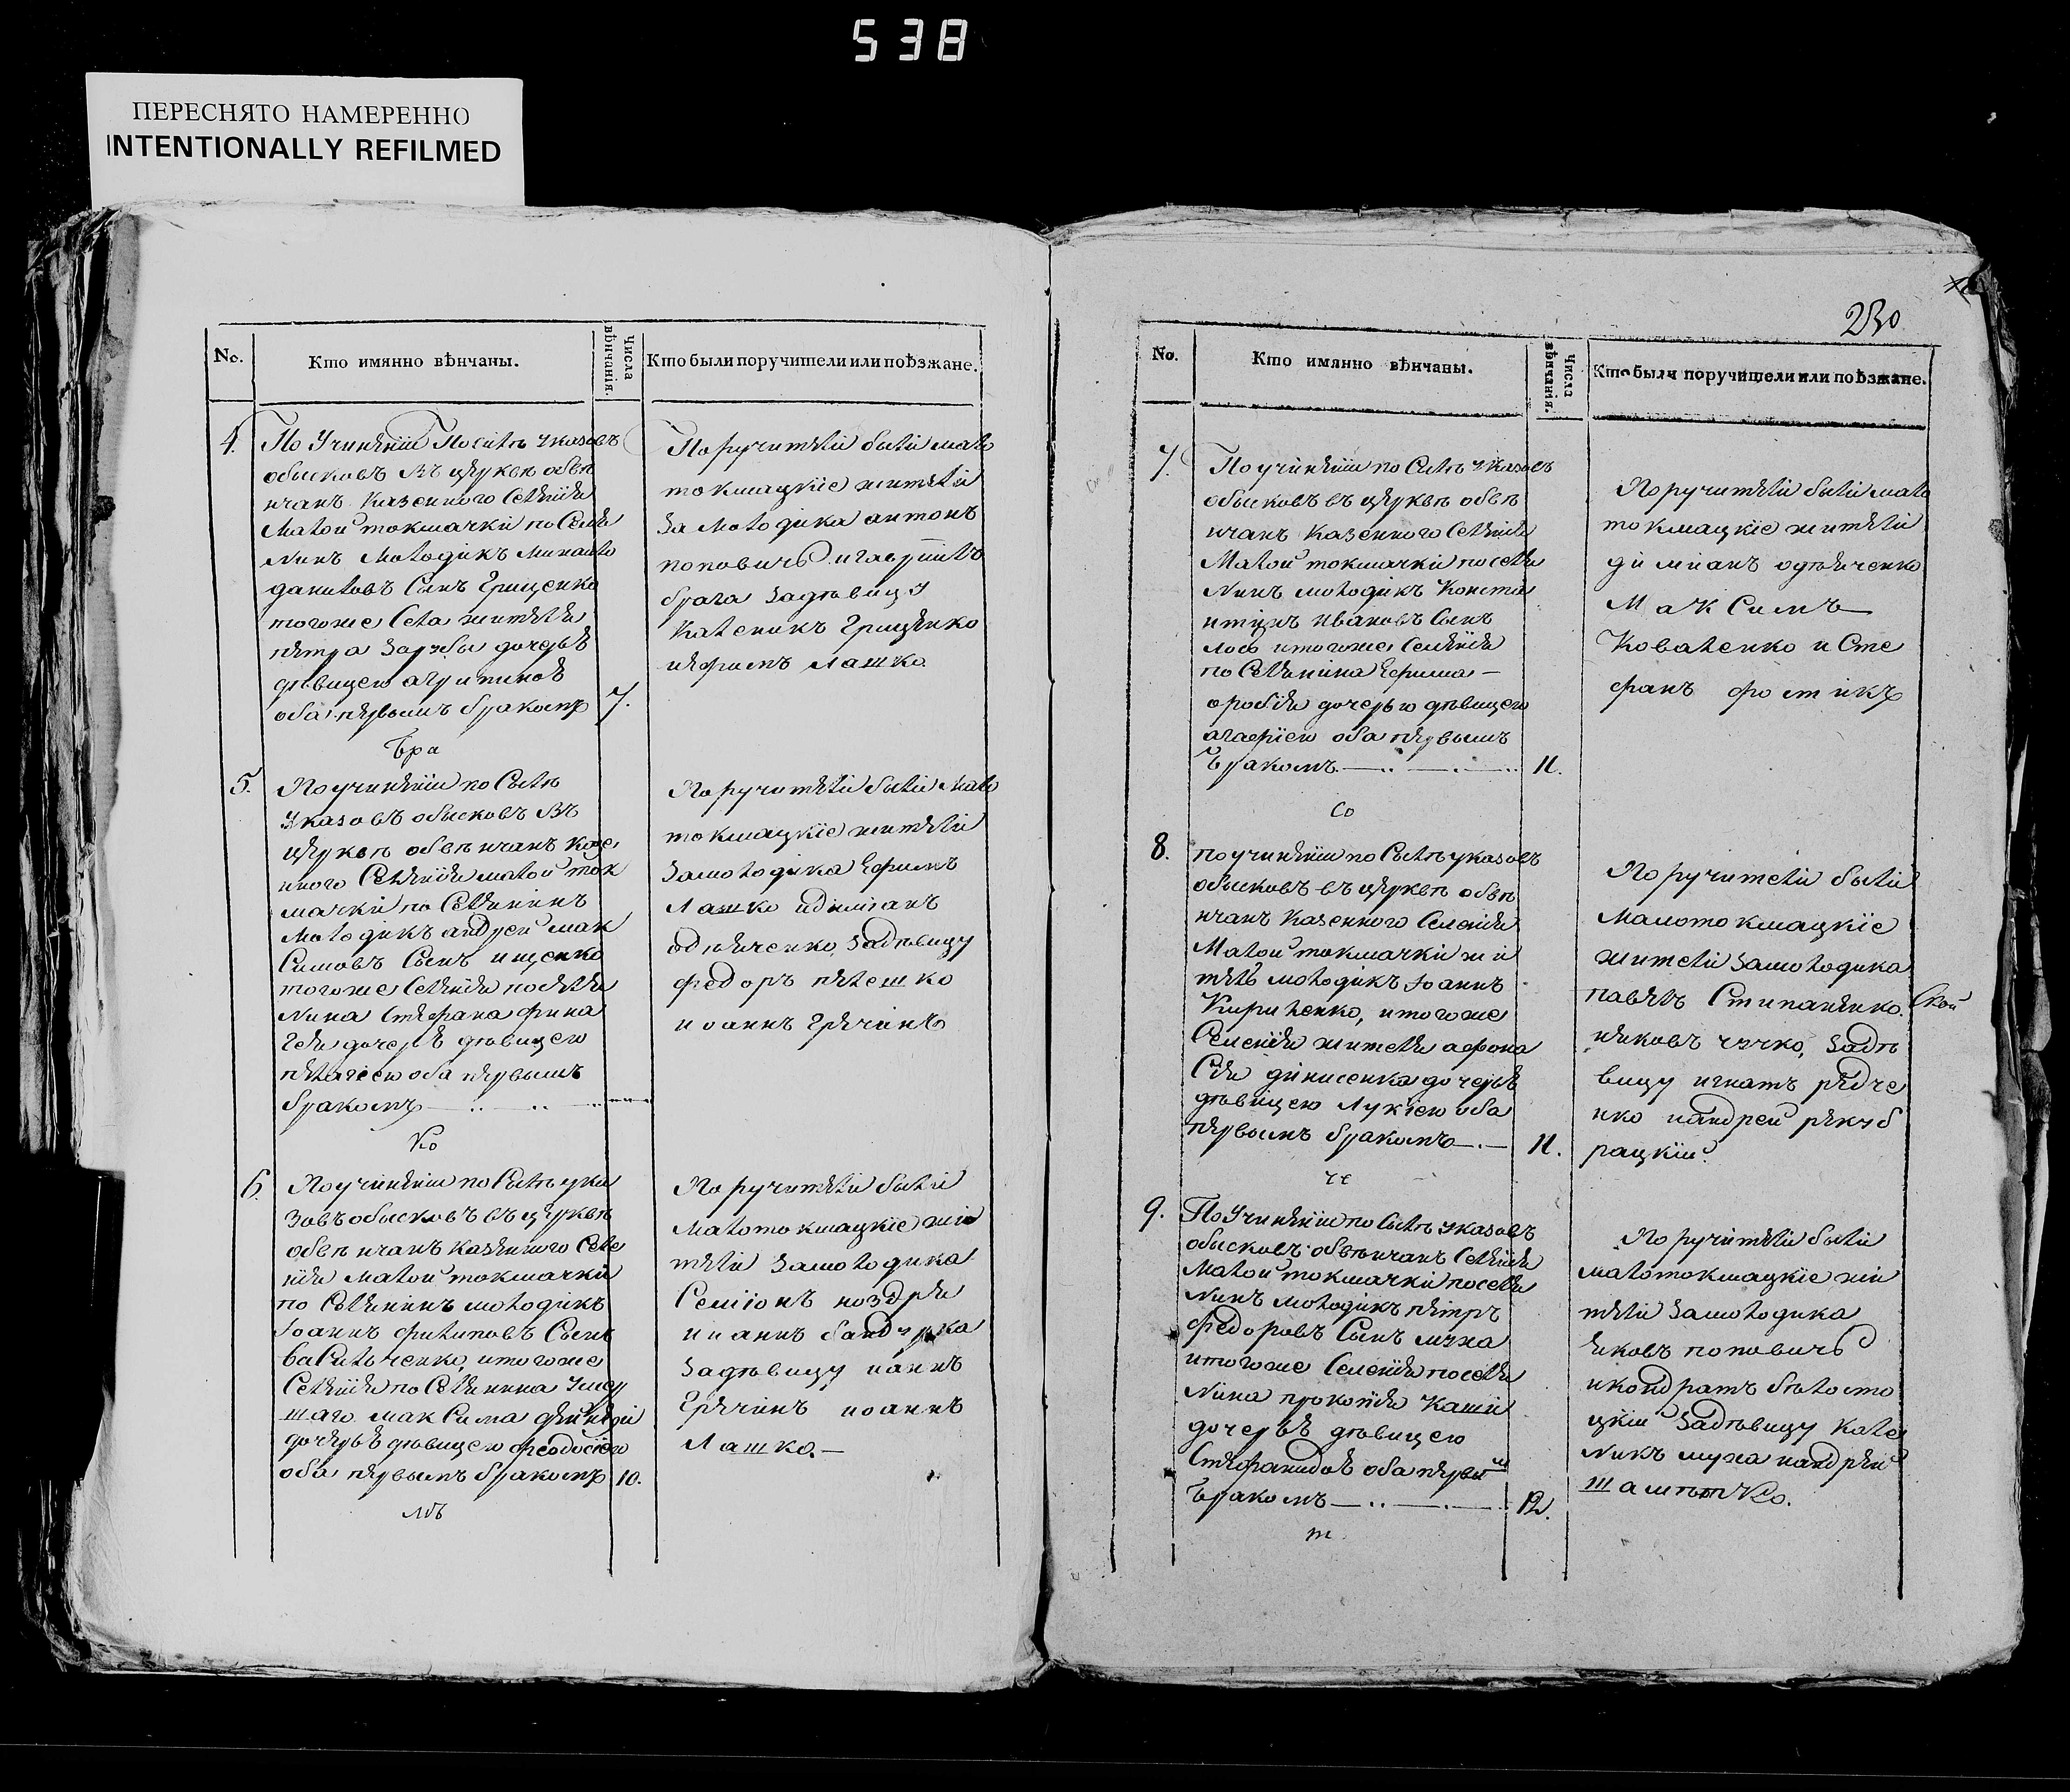 538
ПЕРЕСНЯТО НАМЕРЕННО
INTENTIONALLY REFILMED
No.
Кто имянно вѣнчаны.
Числа вѣнчанія.
Кто были поручители или поѣзжане.
4.
По Учиненіи Посилѣ указовъ
обысковъ Въ церквѣ обвѣ
нчанъ Казенного Селенія
Малой токмачки по Селя
нинъ Молодикъ Михаило
даниловъ Сынъ Грищенко
тогоже Села жителя
петра Зарубы дочерѣ
дѣвицею агрипиноѣ
оба первымъ бракомъ
7.
Поручители были мало
токмацкіе жители
За Молодика антонъ
поповичъ игавріилъ
брага Задѣвицу
Каленикъ Грищенко
иефимъ лашко
бра
5.
По учиненіи по Силѣ
указовъ обысковъ Въ
церквѣ обвѣнчанъ казе
нного Селенія малой ток
мачки по Селянинъ
Молодикъ андрей мак
Симовъ Сынъ ищенко
тогоже Селенія поселя
нина Стефана фина
гея дочерѣ дѣвицею
пелагіею оба первымъ
бракомъ
Поручители были Мало
токмацкіе жители
Замолодика Ефимъ
Лашко идиміанъ
одѣйченко, Задѣвицу
федоръ пелешко
иоаннъ Гречинъ
Ко
6.
По учиненіи по Силѣ ука
Зовъ обысковъ въ церквѣ
обвѣнчанъ казенного Селе
нія Малой токмачки
по Селянинъ молодикъ
Іоаннъ филиповъ Сынъ
ваСильченко, итогоже
Селенія по Селянина Умер
шаго макСима
дочерѣ дѣвицею феодосіею
оба первымъ бракомъ
10.
Поручители были
Малотокмацкіе жи
тели Замолодика
Семіонъ ноздря
иианнъ бандурка
Задѣвицу иоаннъ
Гречинъ иоаннъ
Лашко.
мъ
230
No.
Кто имянно вѣнчаны.
Числа вѣнчанія.
Кто были поручители или поѣзжане.
7.
По учиненіи по Силѣ указовъ
обысковъ въ церквѣ обвѣ
нчанъ Казенного Селенія
Малой токмачки поселя
нинъ молодикъ Конста
нтинъ ивановъ Сынъ
итогоже Селенія
по Селянина Ефима
оробія дочерью дѣвицею
агафіею оба первымъ
бракомъ
11.
Поручители были мало
токмацкіе жители
диміанъ одѣйченко
МакСимъ
Коваленко и Сте
фанъ фостикъ
Со
8.
по учиненіи по Силѣ указовъ
обысковъ въ церквѣ обвѣ
нчанъ Казенного Селенія
Малой токмачки жи
тель молодикъ Іоаннъ
Кириленко, итогоже
Селенія жителя афона
Сія динисенка дочерѣ
дѣвицею Лукіею оба
первымъ бракомъ
11.
Поручители были
Малотокмацкіе
жители Замолодика
павелъ Стипаненко.
ияковъ чучко, Задѣ
вицу игнатъ редче
нко иандрей рекуб
рацкіи
че
9.
По Учиненіи по Силѣ указовъ
обысковъ обвѣнчанъ Селенія
Малой токмачки поселя
нинъ молодикъ петръ
федоровъ Сынъ муха
итогоже Селенія поселя
нина прокопія Каши
дочерѣ дѣвицею
Стефанидоѣ оба первы
м
бракомъ
12.
Поручители были
малотокмацкіе жи
тели Замолодика
яковъ поповичъ
икондратъ бѣлосто
цкіи Задѣвицу Кале
никъ муха иандрей
т